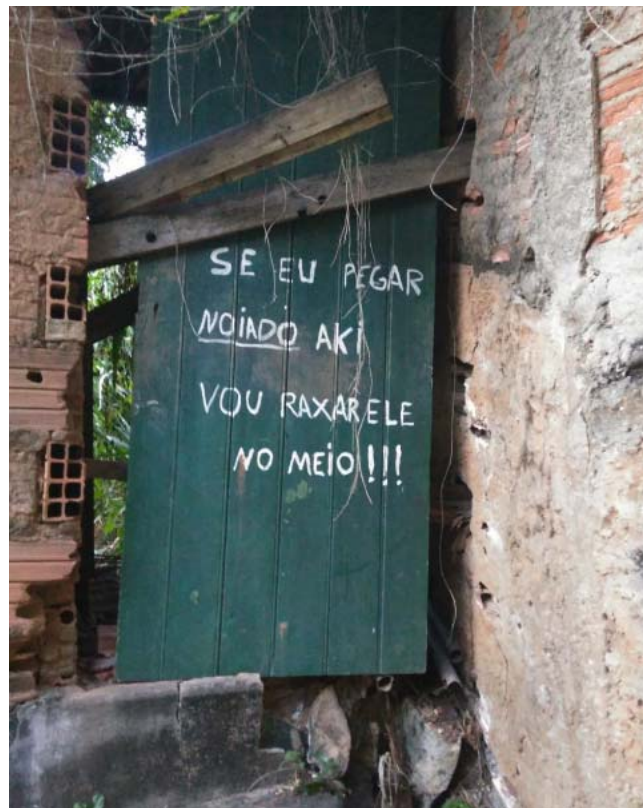 SE EU PEGAR
NOiADO AKi
VOU RAXARELE
NO MEiO!!!